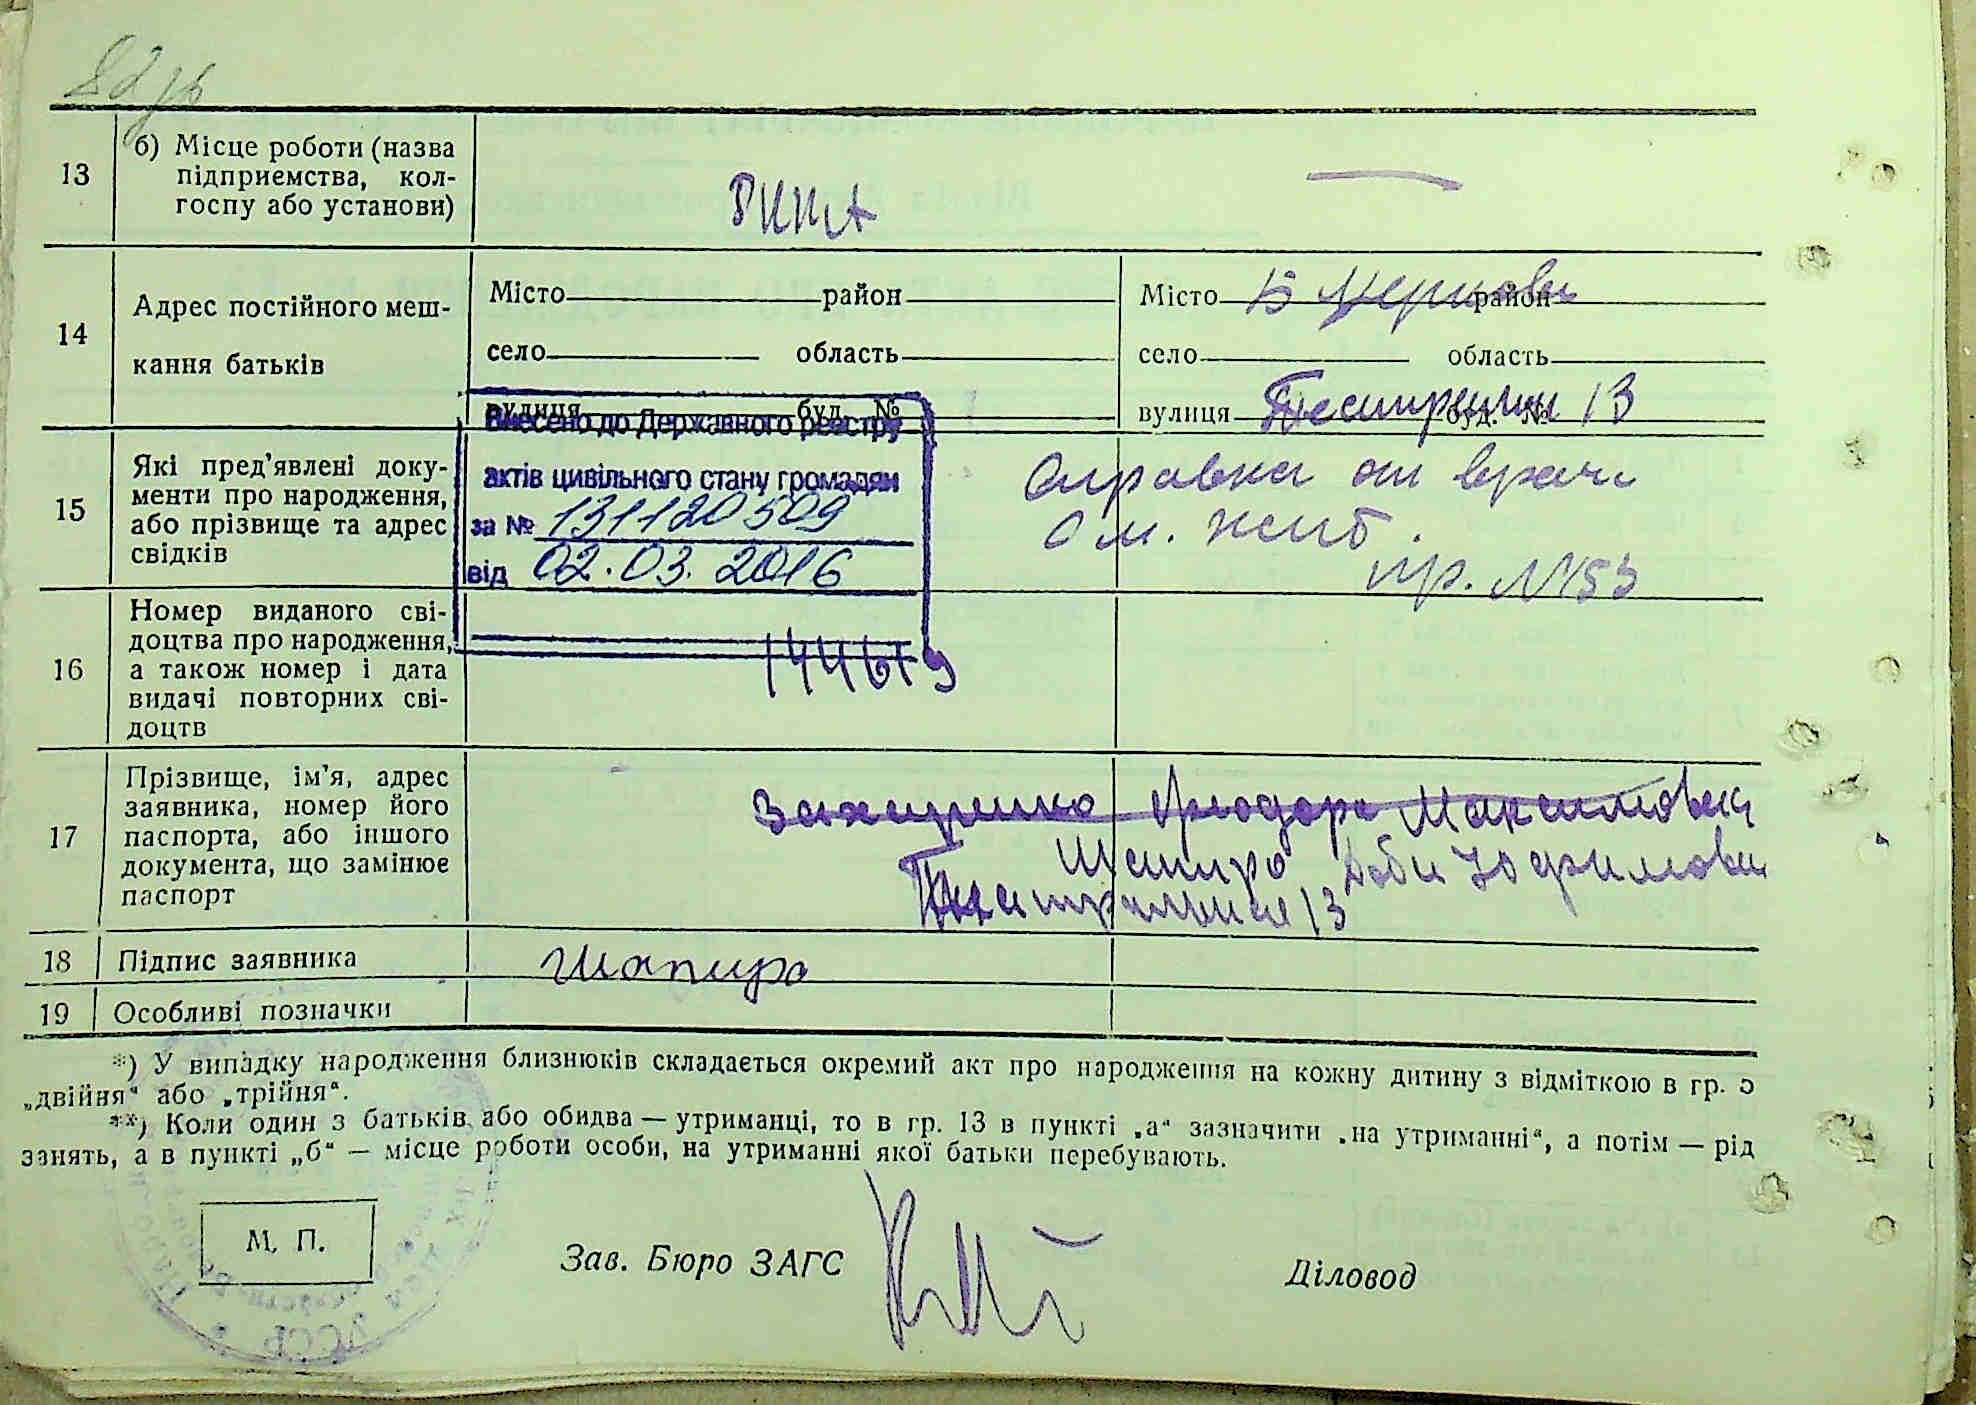 82 зв
13
б) Місце роботи (назва
підприємства, кол-
госпу або установи)
РККА
14
Адрес постійного меш-
кання батьків
Місто район
село область
вулиця буд. №
Місто Б Церковь район
село область
вулиця буд. № 13
Внесено до Державного реєстру
актів цивільного стану громадян
за № 131120509
від 02.03.2016
15
Які пред’явлені доку-
менти про народження,
або прізвище та адрес
свідків
Справка от врача
о м. жит.
пр. №153
16
Номер виданого сві-
доцтва про народження,
а також номер і дата
видачі повторних сві-
доцтв
17
Прізвище, ім’я, адрес
заявника, номер його
паспорта, або іншого
документа, що замінює
паспорт
Максимовна
Шапиро Юфимовна
13
18
Підпис заявника
Шапиро
19
Особливі позначки
*) У випадку народження близнюків складається окремий акт про народження на кожну дитину з відміткою в гр. 5
„двійня“ або „трійня“.
**) Коли один з батьків або обидва — утриманці, то в гр. 13 в пункті „а“ зазначити „на утриманні“, а потім — рід
занять, а в пункті „б“ — місце роботи особи, на утриманні якої батьки перебувають.
М. П.
Зав. Бюро ЗАГС
Діловод
УССР